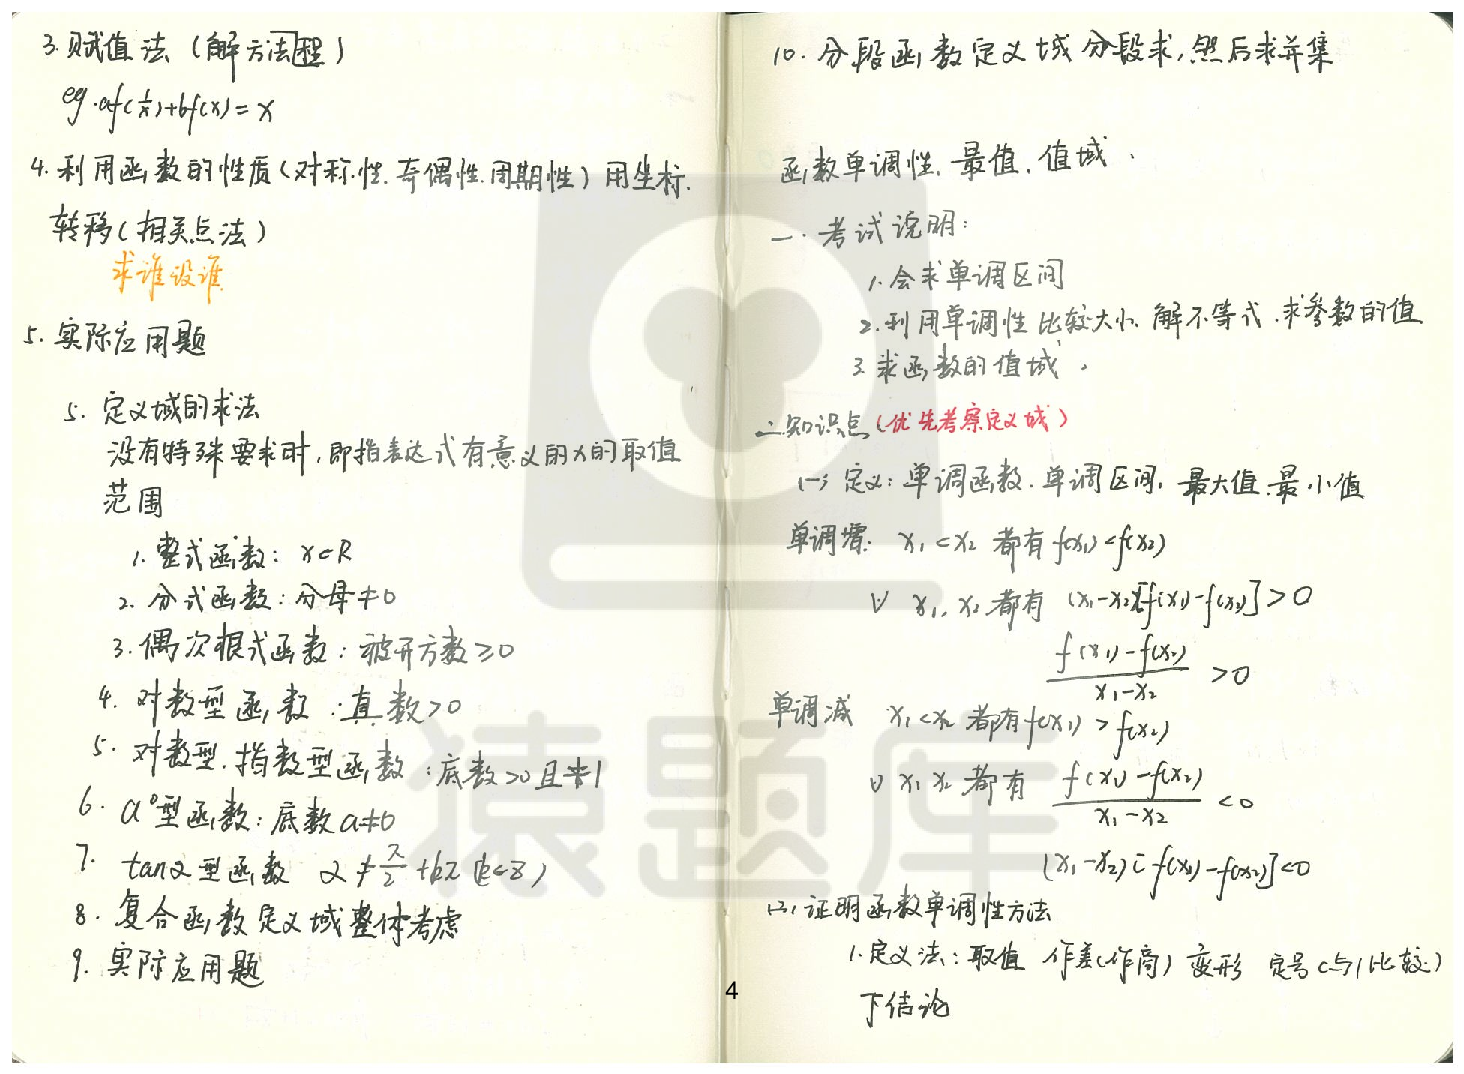 3. 赋值法（解方程）
eg. af(1/x)+bf(x)=x
4. 利用函数的性质(对称性.奇偶性.周期性)用坐标.
转移(相关点法)
求谁设谁
5. 实际应用题
5. 定义域的求法
没有特殊要求时,即指表达式有意义的x的取值
范围
1. 整式函数: x∈R
2. 分式函数: 分母≠0
3. 偶次根式函数: 被开方数≥0
4. 对数型函数: 真数>0
5. 对数型.指数型函数: 底数>0且≠1
6. a⁰型函数: 底数a≠0
7. tanα型函数 α≠π/2+kπ(k∈Z)
8. 复合函数定义域整体考虑
9. 实际应用题
10. 分段函数定义域分段求,然后求并集
函数单调性.最值.值域.
一. 考试说明:
1. 会求单调区间
2. 利用单调性比较大小.解不等式.求参数的值
3. 求函数的值域.
二.知识点(优先考察定义域)
(一) 定义: 单调函数.单调区间.最大值.最小值
单调增: x₁<x₂ 都有 f(x₁)<f(x₂)
∀ x₁, x₂ 都有 (x₁-x₂)[f(x₁)-f(x₂)]>0
f(x₁)-f(x₂)/x₁-x₂ >0
单调减 x₁<x₂ 都有f(x₁)>f(x₂)
∀ x₁ x₂ 都有 f(x₁)-f(x₂)/x₁-x₂ <0
(x₁-x₂)[f(x₁)-f(x₂)]<0
(二) 证明函数单调性方法
1. 定义法: 取值 作差(作商) 变形 定号(与1比较)
下结论
猿题库
4